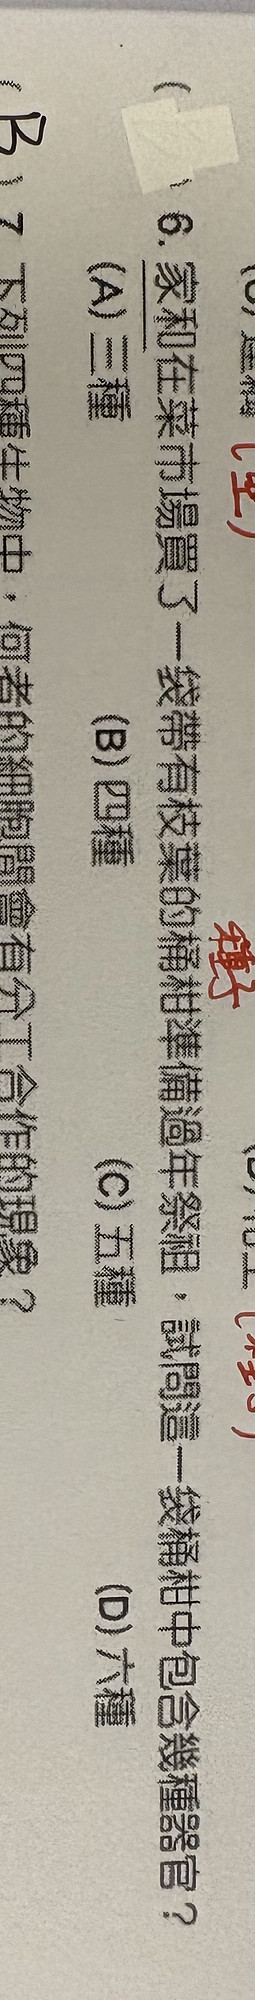 (莖)
種子
( ) 6. 家和在菜市場買了一袋帶有枝葉的桶柑準備過年祭祖，試問這一袋桶柑中包含幾種器官？
(A) 三種 (B) 四種 (C) 五種 (D) 六種
(B) 7. 下列四種生物中，何者的細胞間會有分工合作的現象？